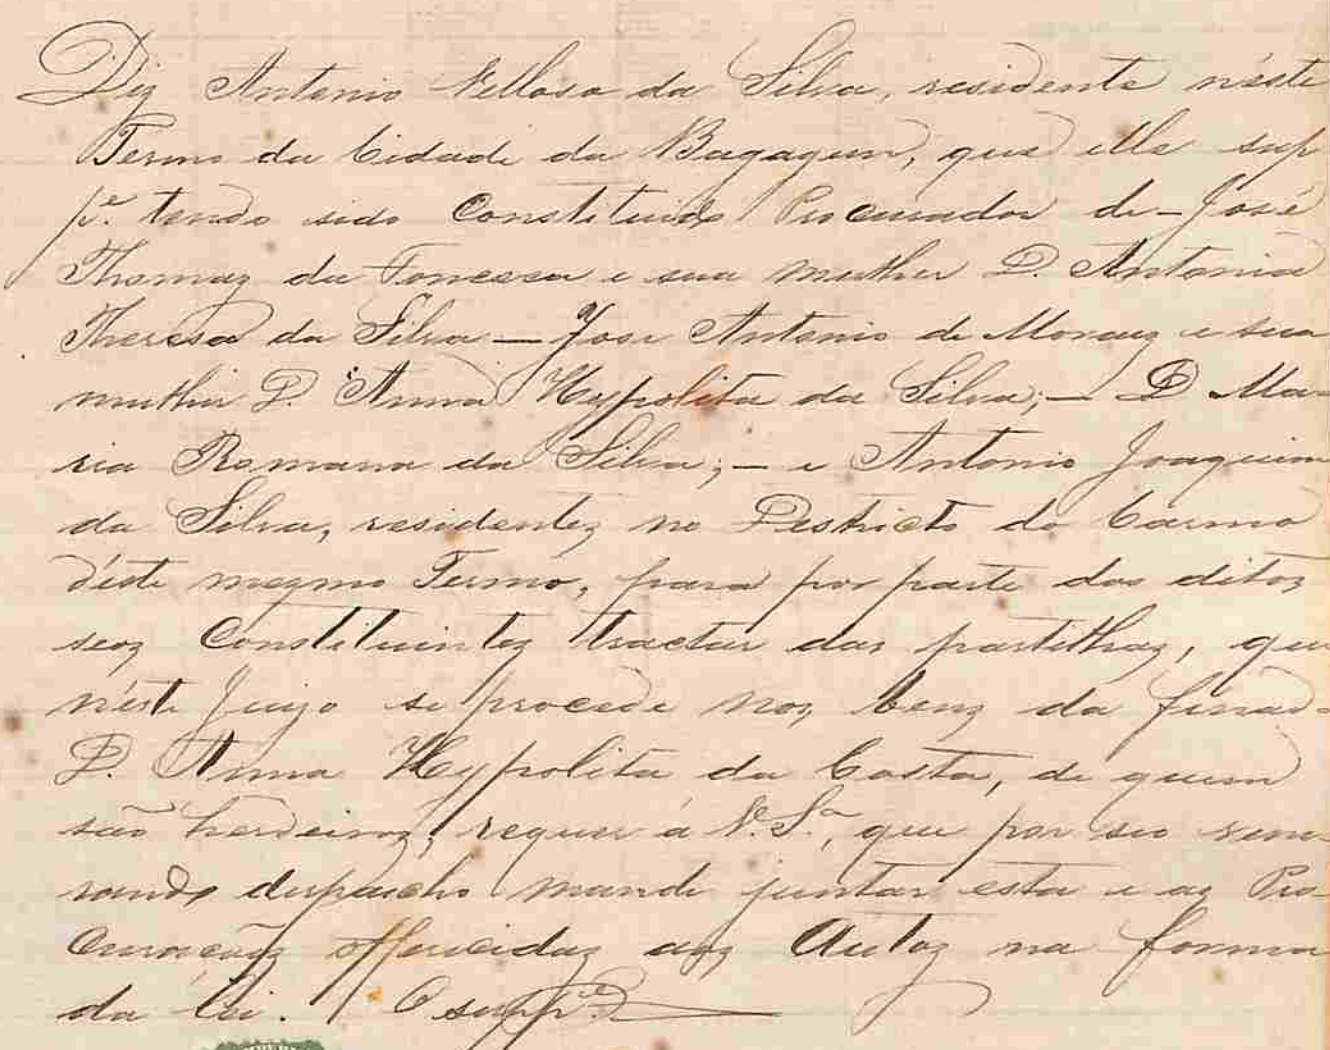 Diz Antonio Velloso da Silva, residente n'este
Termo da Cidade da Bagagem, que elle sup
pe. tendo sido Constituido Procurador de - José
Thomaz da Fonceca e sua mulher D. Antonia
Theresa da Silva — José Antonio de Moraez e sua
mulher D. Anna Hypolita da Silva; — D Ma-
ria Romana da Silva; — e Antonio Joaquim
da Silva, residentez no Destricto do Carmo
d'éste mezmo Termo, para por parte dos ditoz
seoz Constituintez tractar das partilhaz, que
n'éste Juizo se procede noz benz da finad-
D. Anna Hypolita da Costa, de quem
são herdeiroz, requer á V. Sa., que por seo vene-
rando despacho mande juntar esta e as Pro-
curaçõez offerecidaz aoz Autoz na forma
da lei. O suppe.